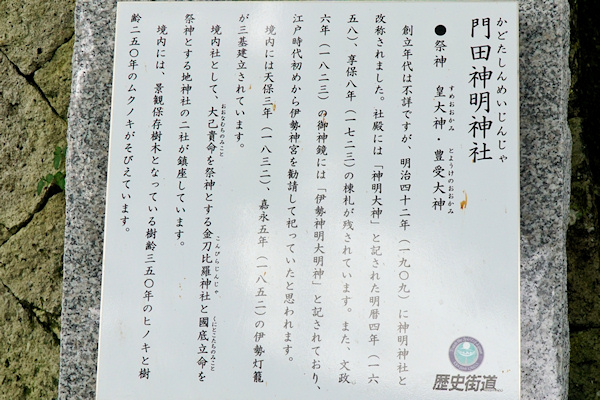 かどたしんめいじんじゃ
門田神明神社
すめおおかみ とようけのおおかみ
●祭神 皇大神・豊受大神
創立年代は不詳ですが、明治四十二年（一九〇九）に神明神社と
改称されました。社殿には「神明大神」と記された明暦四年（一六
五八）、享保八年（一七二三）の棟札が残されています。また、文政
六年（一八二三）の御神鏡には「伊勢神明大明神」と記されており、
江戸時代初めから伊勢神宮を勧請して祀っていたと思われます。
境内には天保三年（一八三二）、嘉永五年（一八五二）の伊勢灯籠
が三基建立されています。
おおむちのみこと こんぴらじんじゃ くにとこたちのみこと
境内社として、大己貴命を祭神とする金刀比羅神社と國底立命を
祭神とする地神社の二社が鎮座しています。
境内には、景観保存樹木となっている樹齢三五〇年のヒノキと樹
齢二五〇年のムクノキがそびえています。
歴史街道